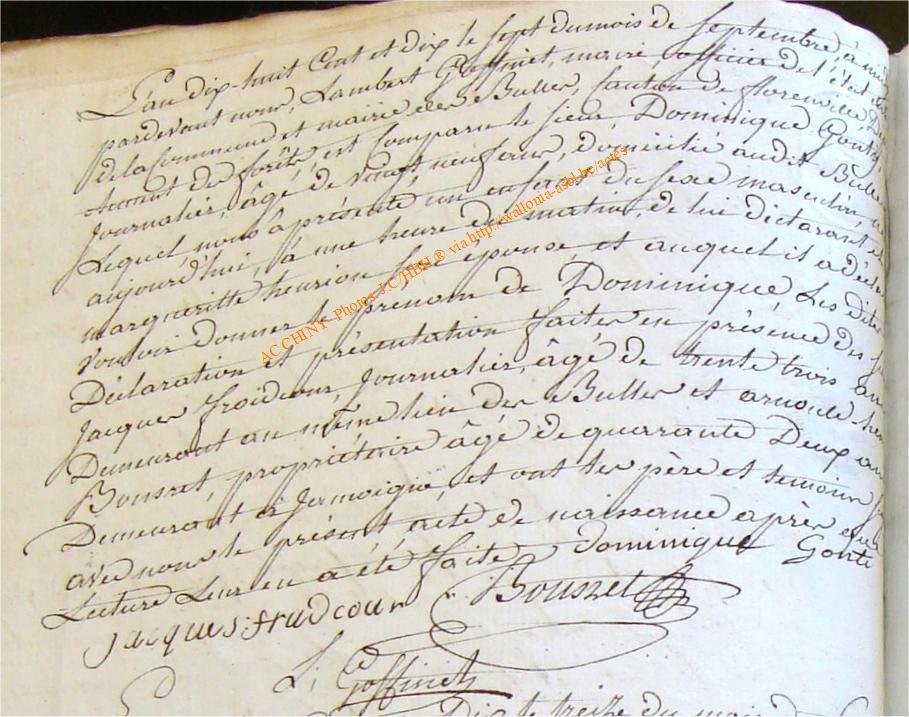 L'an dix-huit Cent et dix le sept du mois de Septembre, à
pardevant nous, Lambert Goffinet, maire, officier de l'état
de la Commune et mairie des Bulles, Canton de florenville,
des forêts, est Comparu le sieur Dominique Gonté
Journalier, âgé de vingt neuf ans, domicilié audit Bulles
Lequel nous à présenté un enfant du sexe masculin, né
aujourd'hui, à une heure du matin, de lui déclarant et
margueritte henrion son épouse, et auquel il a
vouloir donner le prénom de Dominique, Les dites
Déclaration et présentation faites en présence des
Jacques froidcour, Journalier, âgé de trente trois ans
Demeurant au même lieu des Bulles et arnould
Bousret, propriétaire âgé de quarante Deux ans
Demeurant à Jamoigne, et ont les père et temoins
avec nous le présent acte de naissance après
Lecture Leur en a été faite dominique Gonté
jacques frudcour Bousret
L. Goffinet
Dix le treize du mois de
ACCHINT- Photos J.C/HBH ® via http://wallonia-asbl.be/actes